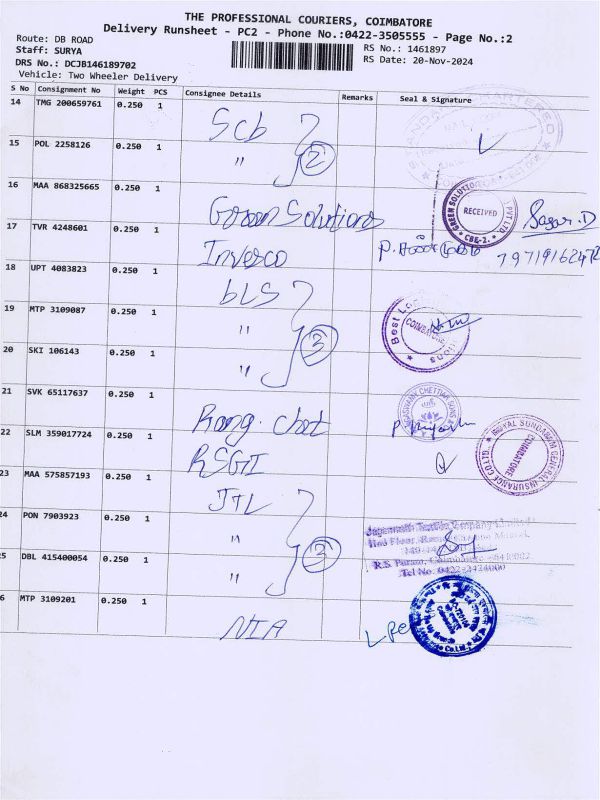 THE PROFESSIONAL COURIERS, COIMBATORE
Delivery Runsheet - PC2 - Phone No.:0422-3505555 - Page No.:2
Route: DB ROAD
RS No.: 1461897
Staff: SURYA
RS Date: 20-Nov-2024
DRS No.: DCJB146189702
Vehicle: Two Wheeler Delivery
S No Consignment No Weight PCS Consignee Details Remarks Seal & Signature
14 TMG 200659761 0.250 1 Scb
15 POL 2258126 0.250 1 " 2
16 MAA 868325665 0.250 1 Green Solutions RECEIVED CBE-2. Sagar.D
17 TVR 4248601 0.250 1 Invesco
18 UPT 4083823 0.250 1 bLS
19 MTP 3109087 0.250 1 " 3 COIMBATORE
20 SKI 106143 0.250 1 "
21 SVK 65117637 0.250 1 Rang. Chet
22 SLM 359017724 0.250 1 RSGI ROYAL SUNDARAM GENERAL INSURANCE CO.LTD. COIMBATORE
23 MAA 575857193 0.250 1 JTL
24 PON 7903923 0.250 1 " 3
25 DBL 415400054 0.250 1 "
R.S. Puram, Coimbatore
Tel No. 0422-2424000
6 MTP 3109201 0.250 1 NIA